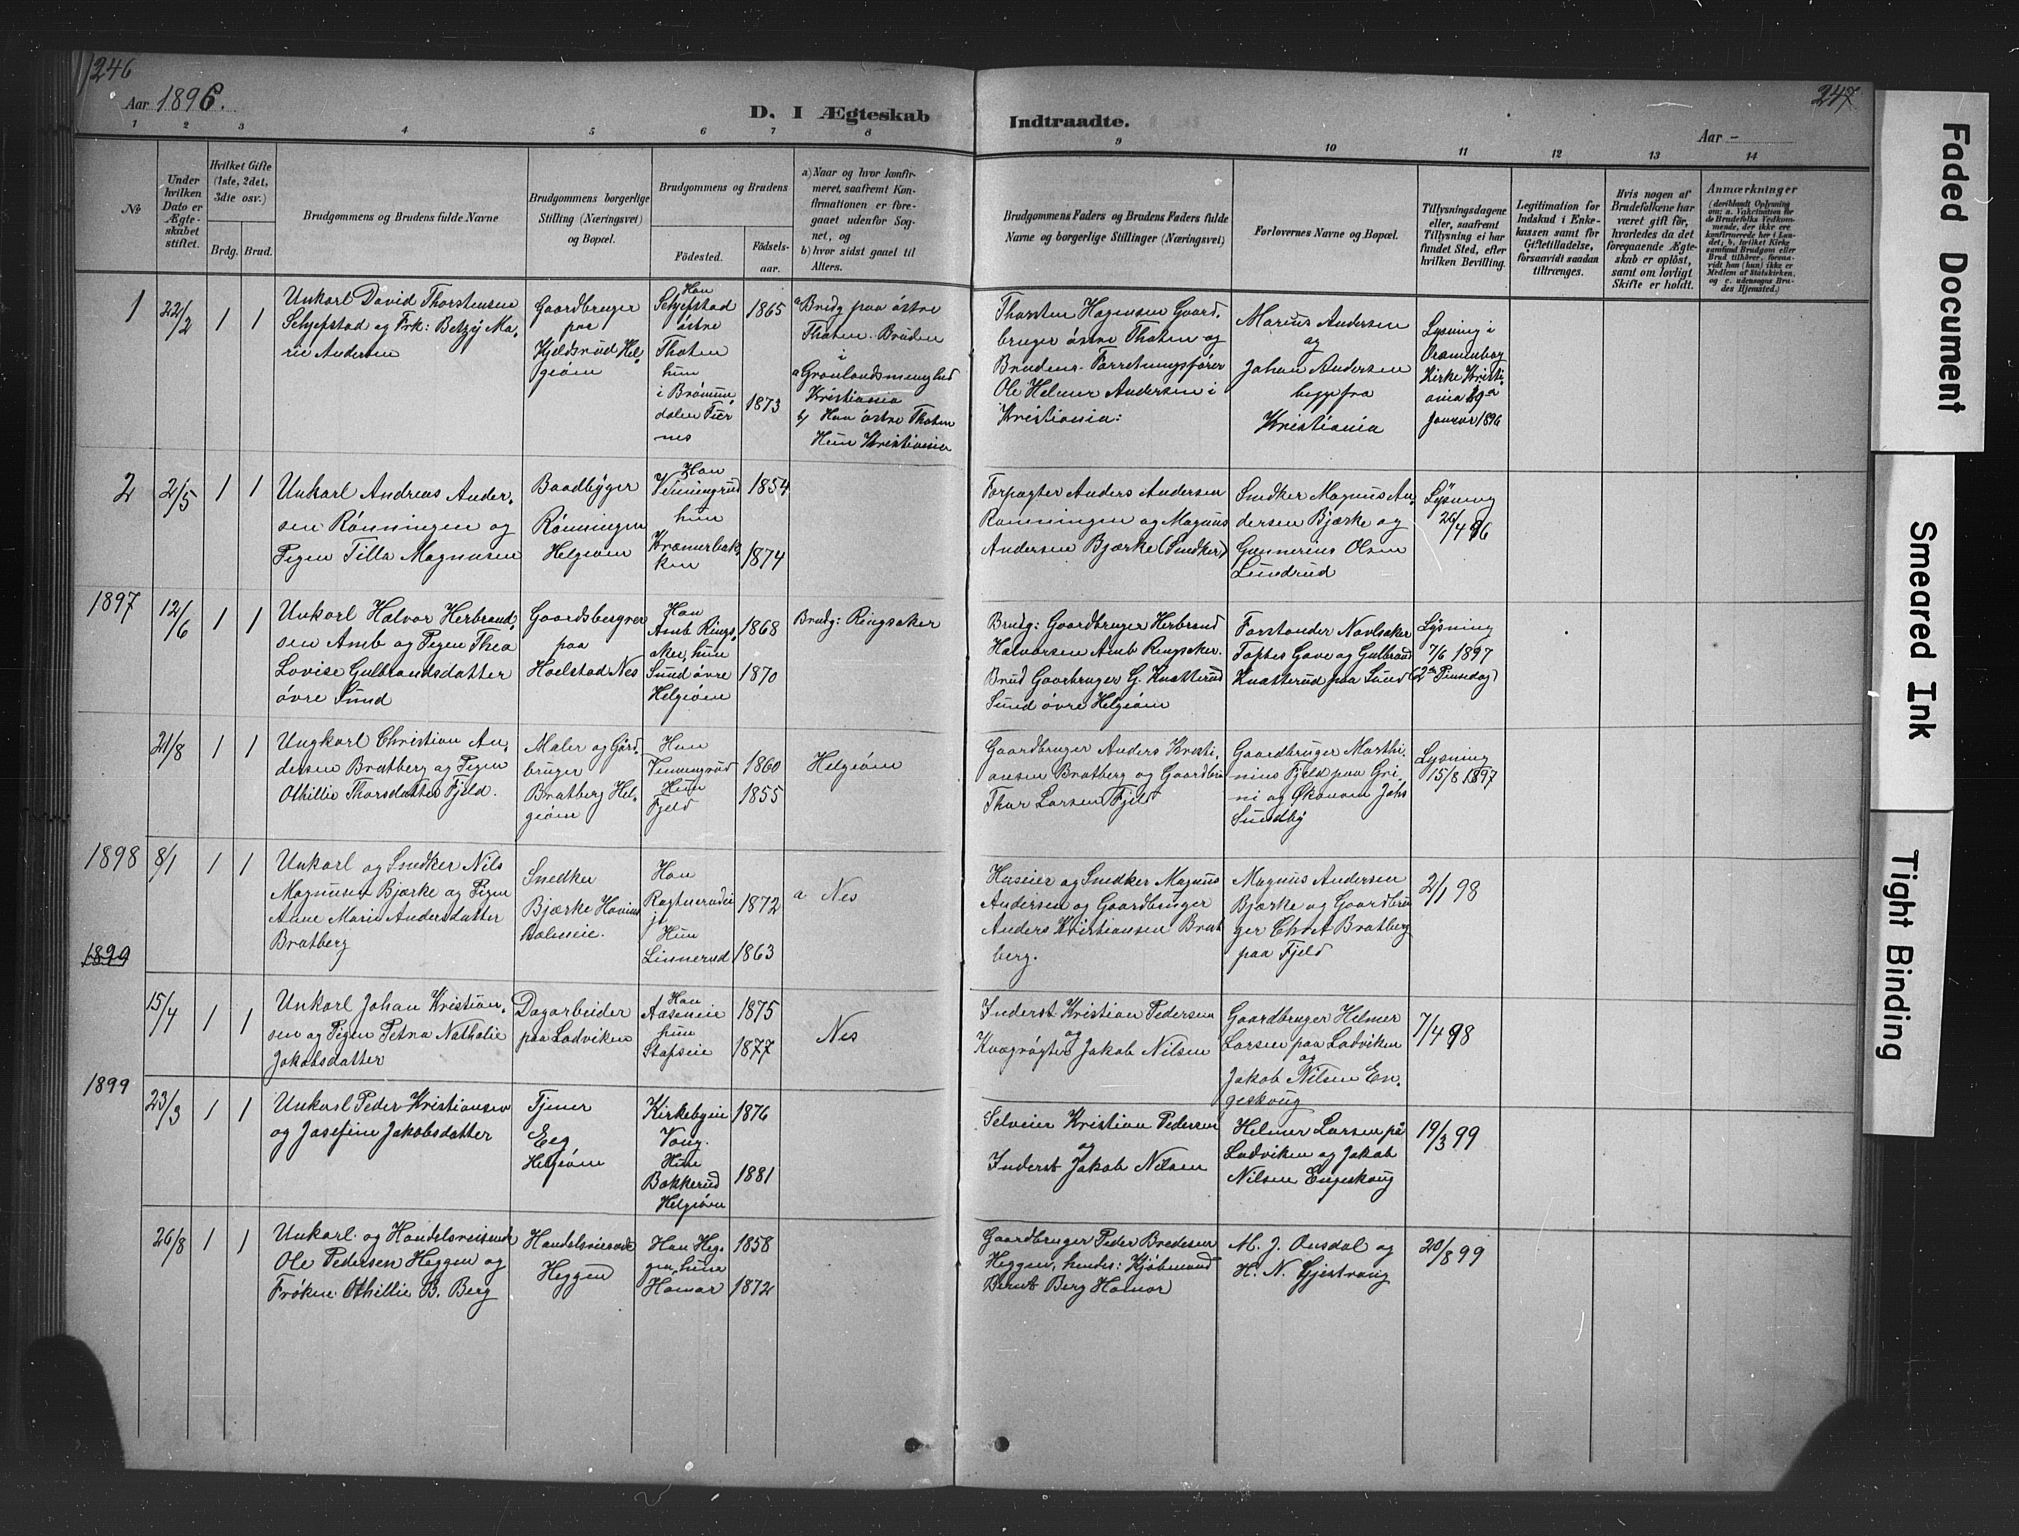 246
Aar 1896.
D. I Ægteskab
1 2 3 4 5 6 7 8
№
Under hvilken Dato er Ægteskabet stiftet.
Hvilket Gifte (1ste, 2det, 3die osv.)
Brdg. Brud.
Brudgommens og Brudens fulde Navne
Brudgommens borgerlige Stilling (Næringsvei) og Bopæl.
Brudgommens og Brudens
Fødested.
Fødselsaar.
a) Naar og hvor konfirmeret, saafremt Konfirmationen er foregaaet udenfor Sognet, og
b) hvor sidst gaaet til Alters.
1 22/2 1 1
Unkarl David Thorstensen
Seljefstad og Frk: Betzy Marie Andersen
Gaardbruger
paa
Kjeldsrud Helgeøen
Han
Seljefstad
østre
Thoten
hun
i Brømundalen Furnes
1865
1873
a Brudg paa østre
Thoten. Bruden
i
a Grønlandsmenighed
Kristiania
b) Han østre Thoten
Hun Kristiania
2 2/5 1 1
Unkarl Andreas Andersen Rønningen og
Pigen Tilla Magnusen
Baadbyger
Rønningen
Helgeøen
Han
Venningrud
hun
Kræmerbakken
1854
1874
1897
12/6 1 1
Unkarl Halvor Herbrandsen Amb og Pigen Thea
Lovise Gulbrandsdatter
øvre Sund
Gaardsbestyrer
paa
Hoelstad Nes
Han
Amb Ringsaker, hun
Sund øvre
Helgeøen
1868
1870
Brudg: Ringsaker
21/8 1 1
Ungkarl Christian Andersen Bratberg og Pigen
Othillie Thorsdatter Fjeld.
Maler og Gårdbruger
Bratberg Helgeøen
Han
Venningrud
Hun
Fjeld
1860
1855
Helgeøen
1898
8/1 1 1
Unkarl og Snedker Nils
Magnusen Bjærke og Pigen
Anne Marie Andersdatter
Bratberg
Snedker
Bjærke
Han
Hun
Linnerud
1872
1863
a Nes
1899
15/4 1 1
Unkarl Johan Kristiansen og Pigen Petra Nathalie
Jakobsdatter
Dagarbeider
paa Ladviken
Han
Aaseneie
hun
Stafseie
1875
1877
Nes
1899
23/3 1 1
Unkarl Peder Kristiansen
og Josefine Jakobsdatter
Tjener
Eeg
Helgeøen
Kirkebyeie
Vang.
Hun
Bakkerud
Helgeøen
1876
1881
26/8 1 1
Unkarl og Handelsreisende
Ole Pedersen Heggen og
Frøken Othillie B. Berg
Handelsreisende
Heggen
Han Heggen, hun
Hamar
1858
1872
247
Indtraadte.
Aar -
9 10 11 12 13 14
Brudgommens Faders og Brudens Faders fulde Navne og borgerlige Stillinger (Næringsvei)
Forlovernes Navne og Bopæl.
Tillysningsdagene eller, saafremt Tillysning ei har fundet Sted, efter hvilken Bevilling.
Legitimation for Indskud i Enkekassen samt for Giftetilladelse, forsaavidt saadan tiltrænges.
Hvis nogen af Brudefolkene har været gift før, hvorledes da det foregaaende Ægteskab er opløst, samt om lovligt Skifte er holdt.
Anmærkninger
Thorsten Hagensen Gaardbruger østre Thoten og
Brudens. Forretningsfører
Ole Helmer Andersen i
Kristiania:
Marius Andersen
og
Johan Andersen
begge fra
Kristiania
Lysning i
Oramienborg
Kirke Kristiania 19de
Januar 1896
Forpagter Anders Andersen
Rønningen og Magnus
Andersen Bjærke (Snedker)
Snedker Magnus Andersen Bjærke og
Gunnerius Olsen
Lundrud
Lysning
26/4 96
Brudg: Gaardbruger Herbrand
Halvorsen Amb Ringsaker.
Brud Gaarbruger G. Knatterud
Sund øvre Helgeøen
Forstander Navlsaker
Toftes Gave og Gulbrand
Knatterud paa Sund
Lysning
7/6 1897
(2den Pinsedag)
Gaardbruger Anders Kristiansen Bratberg og Gaardbru
Thor Larsen Fjeld
Gaardbruger Marthinius Fjeld paa Grini og Økonom Johs
Sundby
Lysning
15/8 1897
Huseier og Snedker Magnus
Andersen og Gaardbruger
Anders Kristiansen Bratberg.
Magnus Andersen
Bjærke og Gaardbruger Chr A Bratberg
paa Fjeld
2/1 98
Inderst Kristian Pedersen
og
Kvægrøgter Jakob Nilsen
Gaardbruger Helmer
Larsen paa Ladviken
og
Jakob Nilsen Engeskoug
7/4 98
Selveier Kristian Pedersen
og
Inderst Jakob Nilsen
Helmer Larsen på
Ladviken og Jakob
Nilsen Engeskoug
19/3 99
Gaardbruger Peder Bredesen
Heggen, hendes: Kjøbmand
Bernt Berg Hamar
M. J. Onsdal og
H. N. Gjestvang
20/8 99
Faded Document
Smeared Ink
Tight Binding